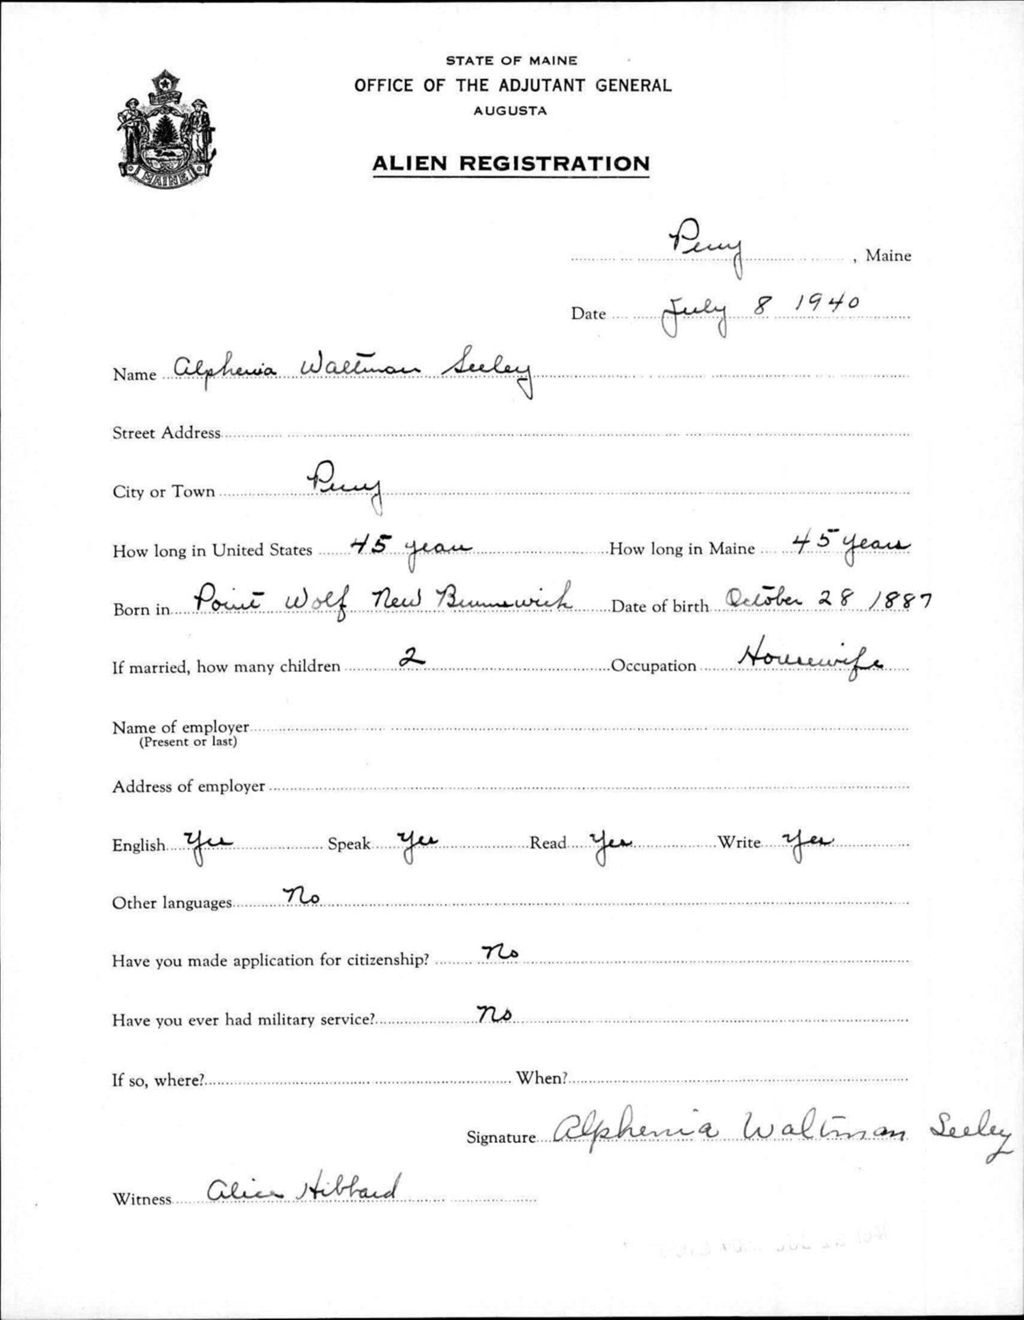 STATE OF MAINE
OFFICE OF THE ADJUTANT GENERAL
AUGUSTA
ALIEN REGISTRATION
MAINE
Perry, Maine
Date July 8 1940
Name Alphenia Waltman Seeley
Street Address
City or Town Perry
How long in United States 45 years How long in Maine 45 years
Born in Point Wolf New Brunswick Date of birth October 28 1887
If married, how many children 2 Occupation Housewife
Name of employer
(Present or last)
Address of employer
English Yes Speak Yes Read Yes Write Yes
Other languages No
Have you made application for citizenship? No
Have you ever had military service? No
If so, where? When?
Signature Alphenia Waltman Seeley
Witness Alice Hibbard